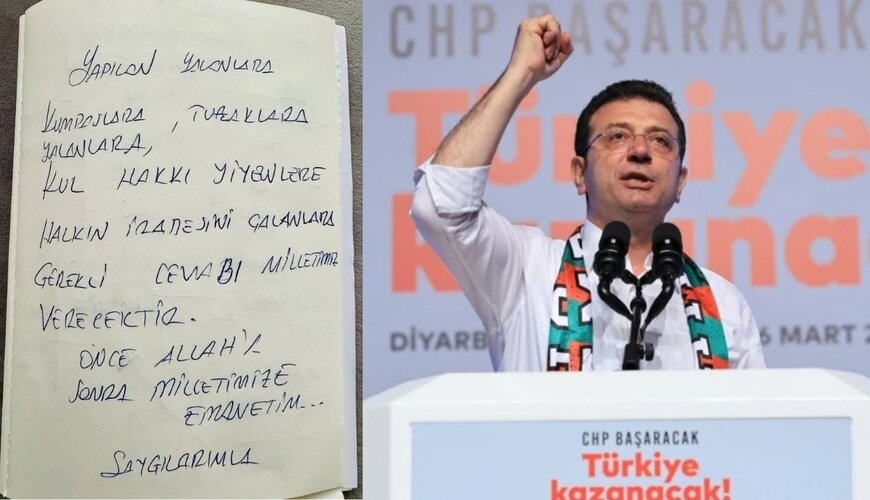 YAPILAN YALANLARA
KUMPASLARA, TUZAKLARA
YALANLARA,
KUL HAKKI YİYENLERE
HALKIN İRADESİNİ ÇALANLARA
GEREKLİ CEVABI MİLLETİMİZ
VERECEKTİR.
ÖNCE ALLAH'A
SONRA MİLLETİMİZE
EMANETİM...
SAYGILARIMLA
CHP BAŞARACAK
Türkiye
kazanaca
DİYARB
6 MART 2
CHP BAŞARACAK
Türkiye
kazanacak!